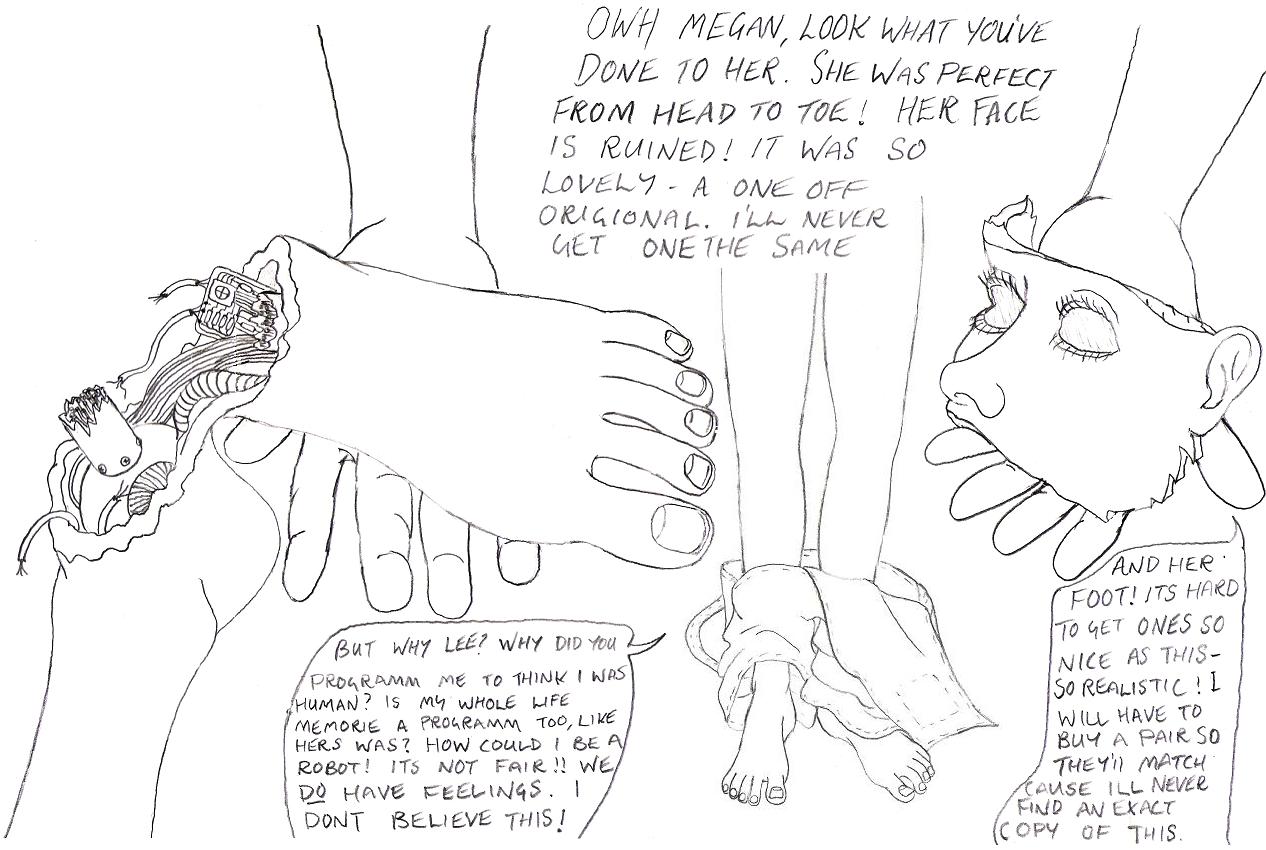 OWH MEGAN, LOOK WHAT YOU'VE
DONE TO HER. SHE WAS PERFECT
FROM HEAD TO TOE! HER FACE
IS RUINED! IT WAS SO
LOVELY - A ONE OFF
ORIGIONAL. I'LL NEVER
GET ONE THE SAME
BUT WHY LEE? WHY DID YOU
PROGRAMM ME TO THINK I WAS
HUMAN? IS MY WHOLE LIFE
MEMORIE A PROGRAMM TOO, LIKE
HERS WAS? HOW COULD I BE A
ROBOT! ITS NOT FAIR!! WE
DO HAVE FEELINGS. I
DONT BELIEVE THIS!
AND HER
FOOT! ITS HARD
TO GET ONES SO
NICE AS THIS -
SO REALISTIC! I
WILL HAVE TO
BUY A PAIR SO
THEY'll MATCH
CAUSE ILL NEVER
FIND AN EXACT
COPY OF THIS.